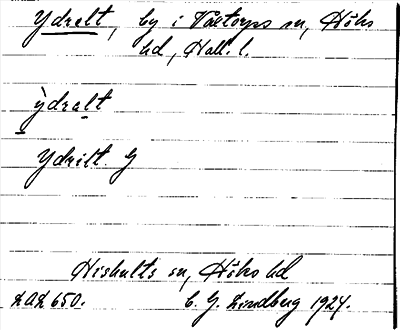 Ydrelt, by i Våxtorps sn, Höks
hd, Hall. l.
ỳdralt
Ydrilt. G
Hishults sn, Höks hd
LAL 650. C. G. Lindberg 1924.